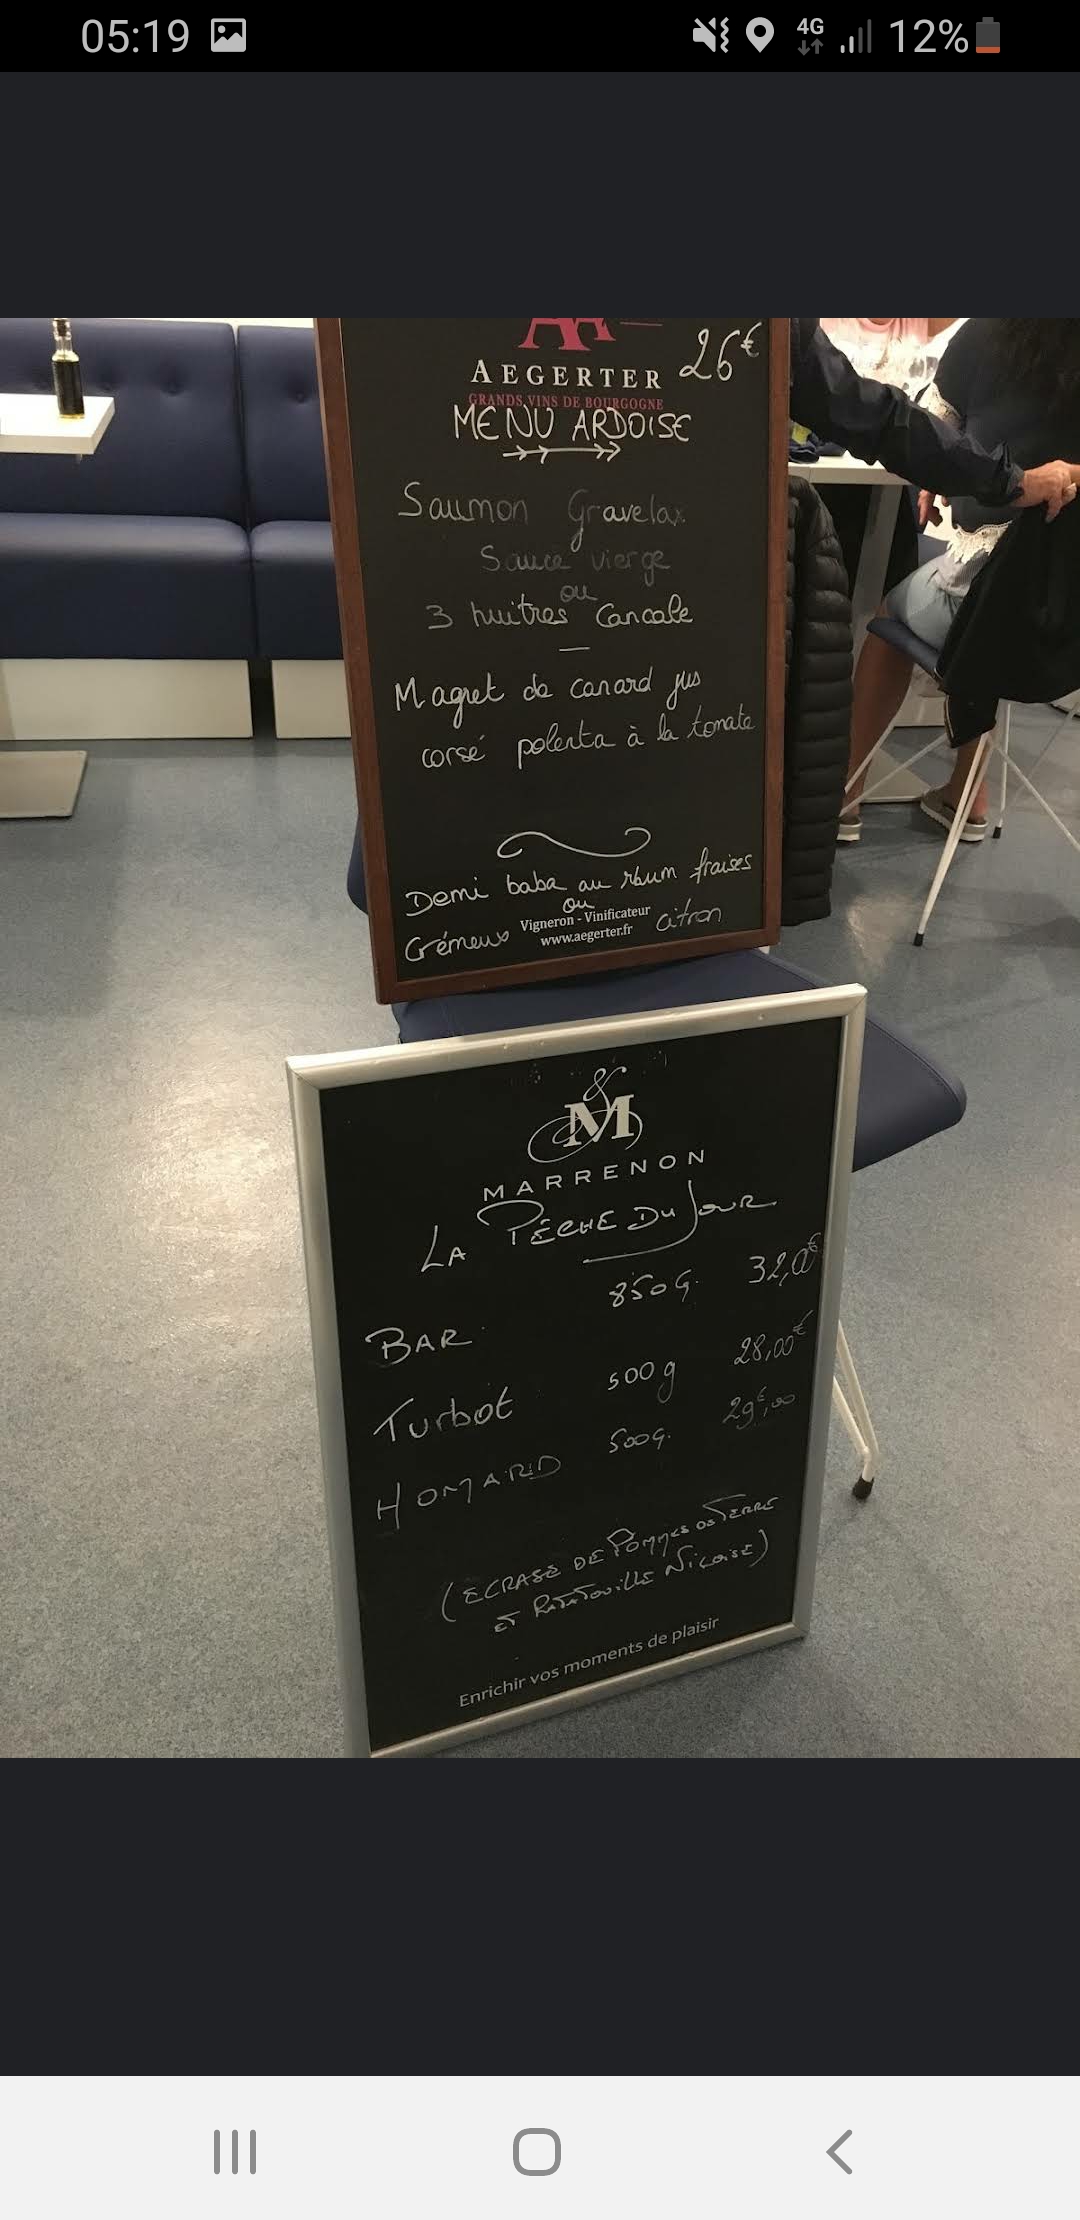 05:19
4G
12%
AEGERTER 26€
GRANDS VINS DE BOURGOGNE
MENU ARDOISE
Saumon Gravelax
Sauce vierge
ou
3 huitres Cancale
Magret de canard jus
corsé polenta à la tomate
Demi baba au rhum fraises
ou
Vigneron - Vinificateur
Crémeux citron
www.aegerter.fr
M
MARRENON
LA PÊCHE DU JOUR
BAR 850G. 32,0€
Turbot 500g 28,00€
HOMARD 500G. 29€,00
(ECRASE DE POMMES DE TERRE
ET RATATOUILLE NICOISE)
Enrichir vos moments de plaisir